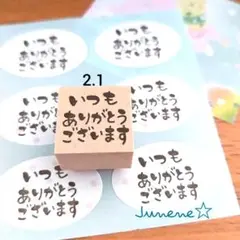 2.1
いつも
ありがとう
ございます
いつも
ありがとう
ございます
いつも
ありがとう
ございます
いつも
ありがとう
ございます
いつも
ありがとう
ございます
いつも
ありがとう
ございます
Junene☆